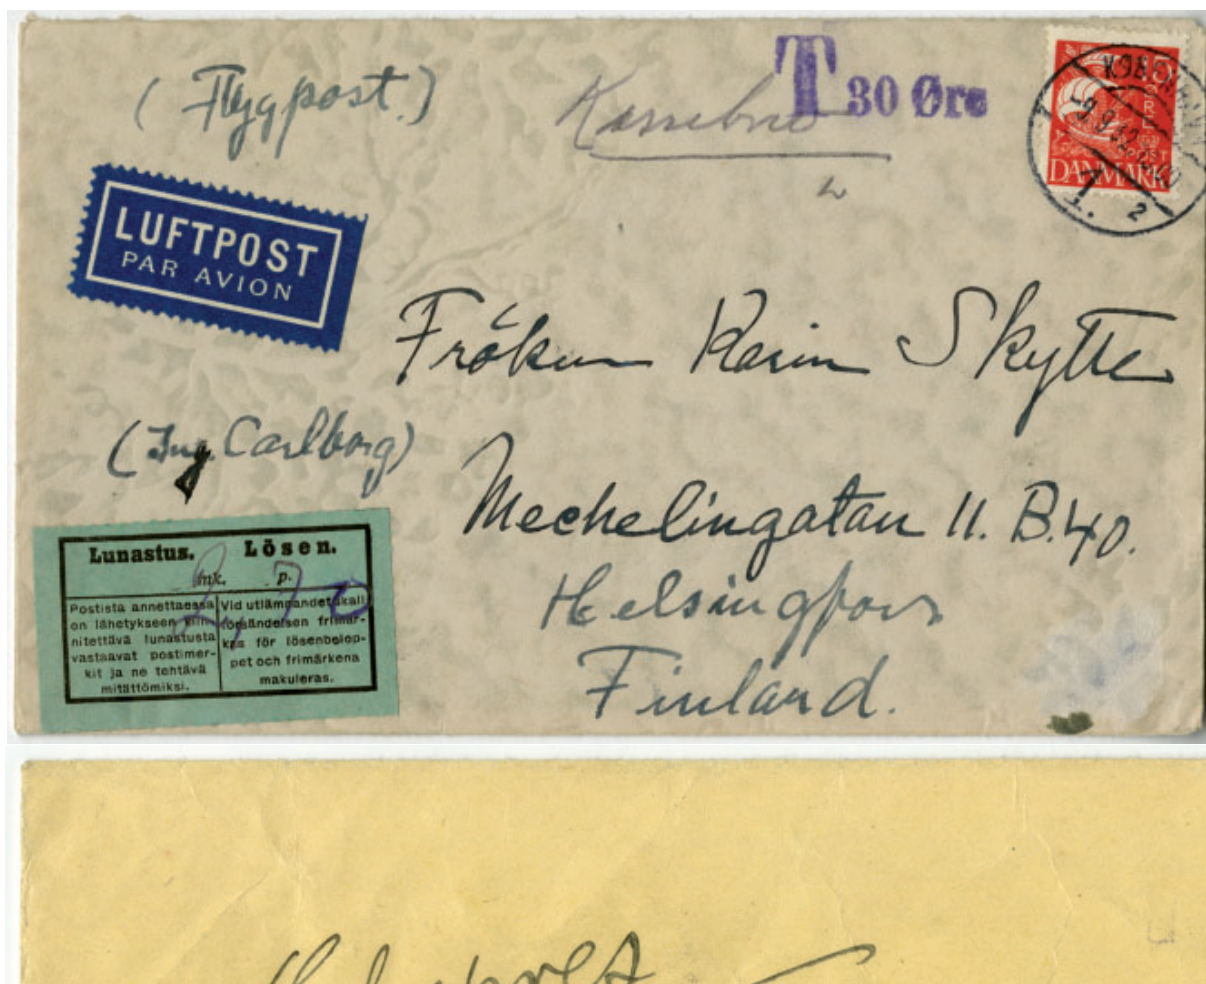 (Flygpost.)
T 30 Øre
DANMARK
LUFTPOST
PAR AVION
Fröken Karin Skytte
(Ing. Carlborg)
Mechelingatan 11. B.40.
Helsingfors
Finland.
Lunastus. Lösen.
mk. p.
2,70
Postista annettaessa
on lähetykseen kiin-
nitettävä lunastusta
vastaavat postimer-
kit ja ne tehtävä
mitättömiksi.
Vid utlämnandet skall
försändelsen frimär-
kas för lösenbelop-
pet och frimärkena
makuleras.